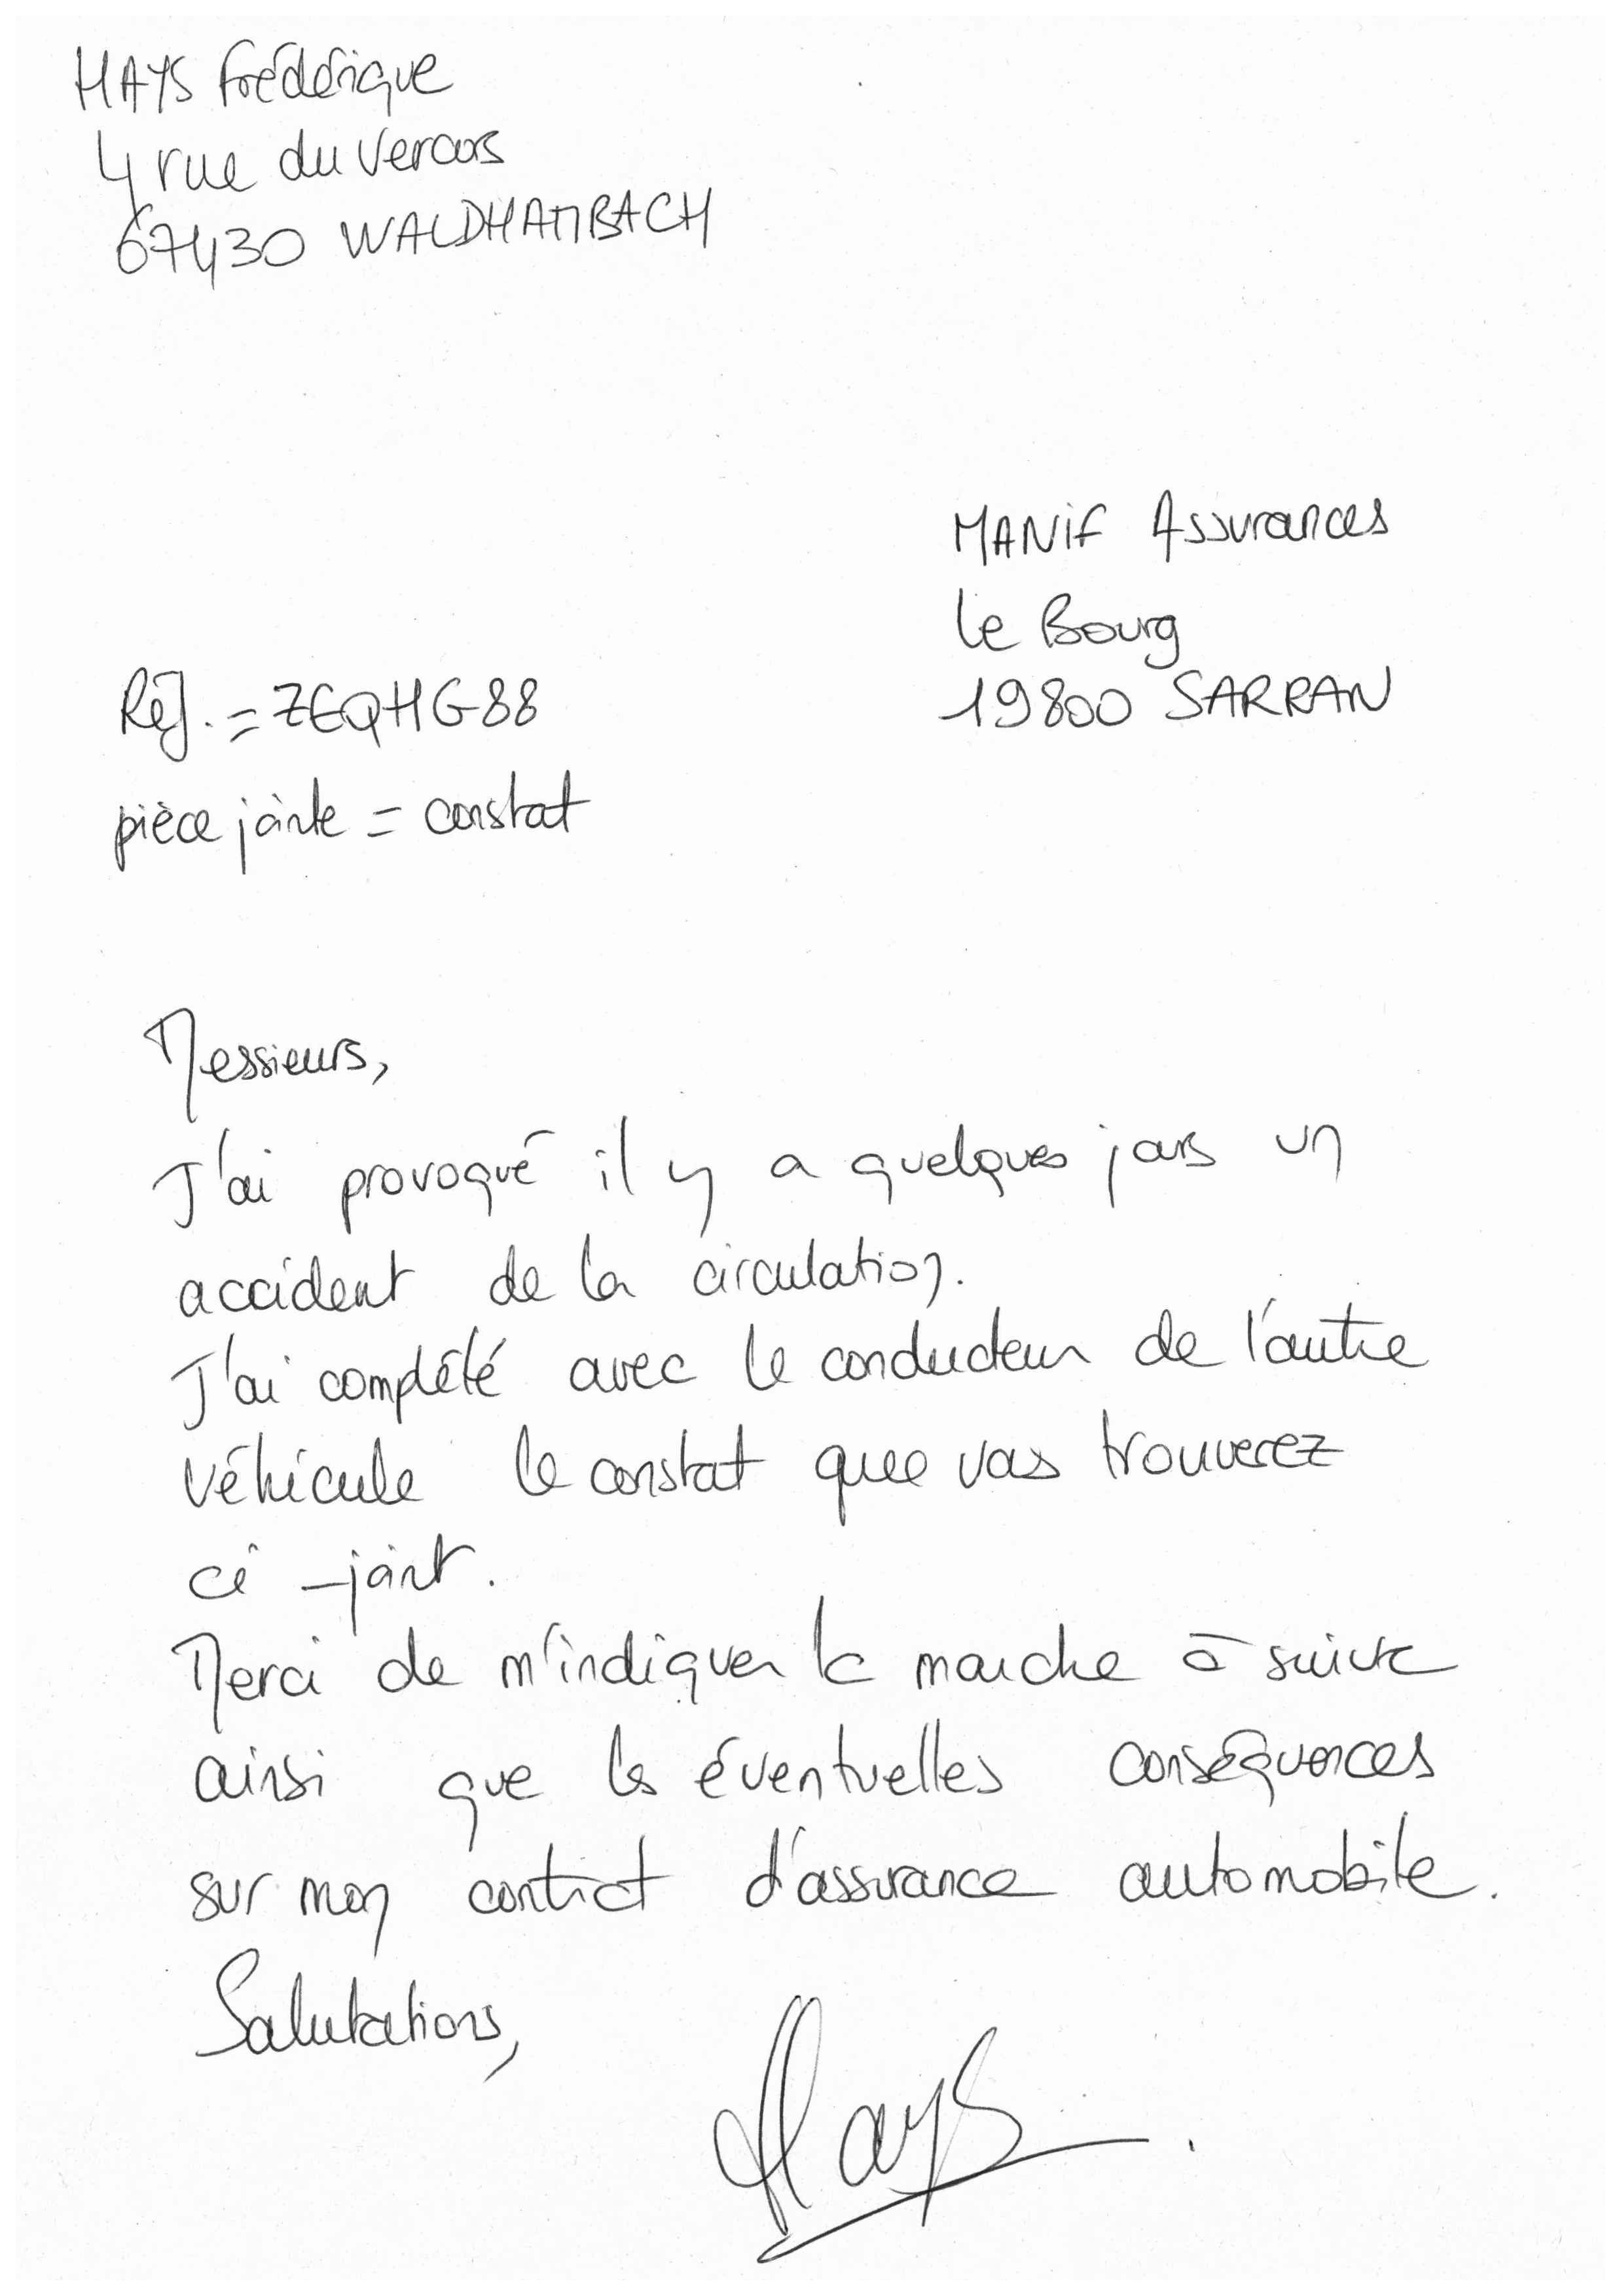 HAYS Frédérique
4 rue du Vercors
67430 WALDHAMBACH
MANIF Assurances
Le Bourg
19800 SARRAN
Réf. = ZEQHG88
pièce jointe = constat
Messieurs,
J'ai provoqué il y a quelques jours un
accident de la circulation.
J'ai complété avec le conducteur de l'autre
véhicule le constat que vous trouverez
ci-joint.
Merci de m'indiquer la marche à suivre
ainsi que les éventuelles conséquences
sur mon contrat d'assurance automobile.
Salutations,
Hays